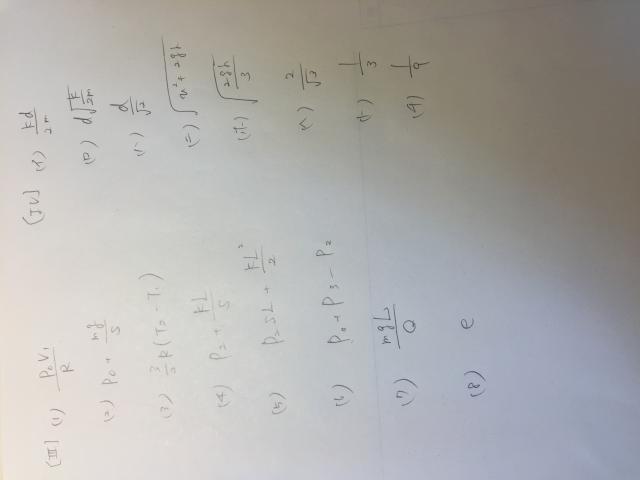 [III] (1) P₀V₁/R
(2) P₀ + mg/S
(3) 3/2 R(T₂ - T₁)
(4) P₂ + kL/S
(5) P₂SL + kL²/2
(6) P₀ + P₃ - P₂
(7) mgL/Q
(8) e
[IV] (イ) kd/2m
(ロ) d√(k/2m)
(ハ) d/√2
(ニ) √(v² + 2gh)
(ホ) √(2gh/3)
(ヘ) 2/√3
(ト) 1/3
(チ) 1/9